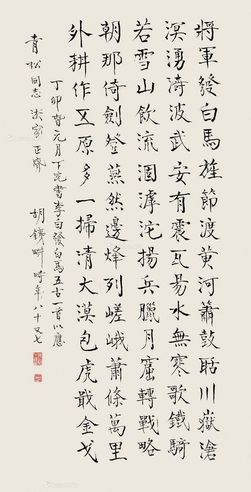 將軍發白馬旌節渡黃河簫鼓聒川嶽滄
溟湧濤波武安有震瓦易水無寒歌鐵騎
若雪山飲流涸滹沱揚兵臘月窟轉戰略
朝那倚劍登燕然邊烽列嵯峨蕭條萬里
外耕作五原多一掃清大漠包虎戢金戈
丁卯春元月下浣書李白發白馬五古一首以應
青松同志法家正
胡鐵畊時年八十又七